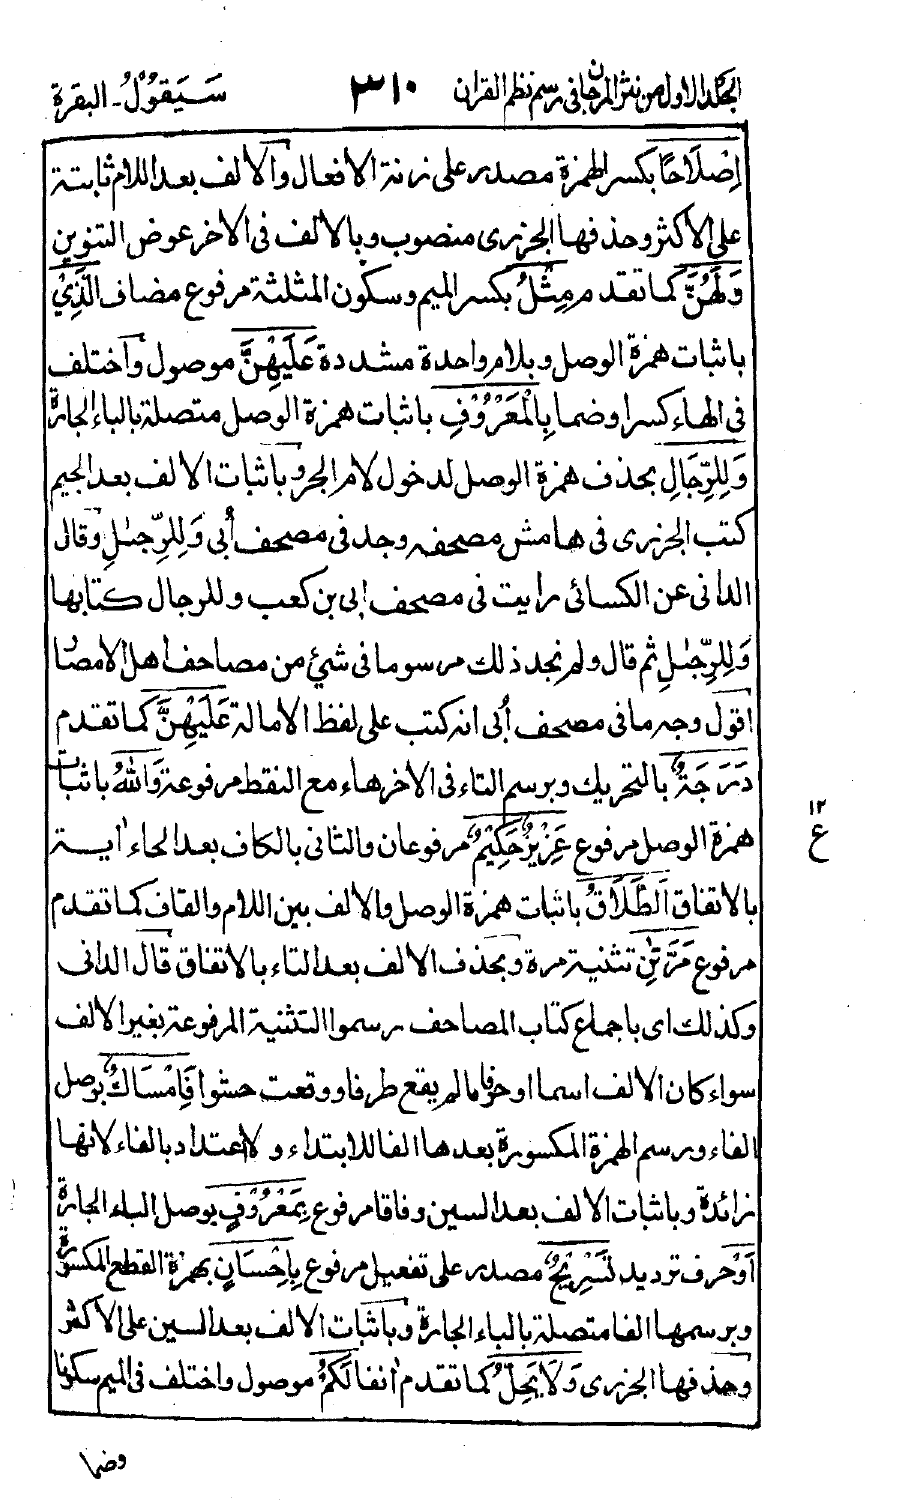 الجلد الاول من نثر المرجان فى رسم نظم القران ٣١٠ سَيَقُوْلُ - البقرة
اِصْلَاحًا بكسر الهمزة مصدر على زنة الافعال والالف بعد اللام ثابتة
على الاكثر وحذفها الجزرى منصوب وبالالف فى الاخر عوض التنوين
وَلَهُنَّ كما تقدم مِثْلُ بكسر الميم وسكون المثلثة مرفوع مضاف الَّذِيْ
باثبات همزة الوصل وبلام واحدة مشددة عَلَيْهِنَّ موصول واختلف
فى الهاء كسرا وضما بِالْمَعْرُوْفِ باثبات همزة الوصل متصلة بالباء الجارة
وَلِلرِّجَالِ بحذف همزة الوصل لدخول لام الجر وباثبات الالف بعد الجيم
كتب الجزرى فى هامش مصحفه وجد فى مصحف أبى وَلِلرِّجٰلِ وقال
الدانى عن الكسائى رايت فى مصحف ابى بن كعب وللرجال كتابها
وَلِلرِّجٰلِ ثم قال ولم نجد ذلك مرسوما فى شئ من مصاحف اهل الامصا
اقول وجه ما فى مصحف أبى انه كتب على لفظ الامالة عَلَيْهِنَّ كما تقدم
دَرَجَةٌ بالتحريك وبرسم التاء فى الاخر هاء مع النقط مرفوعة وَاللهُ باثبات
همزة الوصل مرفوع عَزِيْزٌ حَكِيْمٌ مرفوعان والثانى بالكاف بعد الحاء اية
بالاتفاق اَلطَّلَاقُ باثبات همزة الوصل والالف بين اللام والقاف كما تقدم
مرفوع مَرَّتٰنِ تثنية مرة وبحذف الالف بعد التاء بالاتفاق قال الدانى
وكذلك اى باجماع كتاب المصاحف رسموا التثنية المرفوعة بغير الالف
سواء كان الالف اسما او حرفا مالم يقع طرفا ووقعت حشوا فَاِمْسَاكٌ بوصل
الفاء ورسم الهمزة المكسورة بعدها الفا للابتداء ولا اعتداد بالفاء لانها
زائدة وباثبات الالف بعد السين وفاقا مرفوع بِمَعْرُوْفٍ بوصل الباء الجارة
اَوْ حرف ترديد تَسْرِيْحٌ مصدر على تفعيل مرفوع بِاِحْسَانٍ بهمزة القطع المكسورة
وبرسمها الفا متصلة بالباء الجارة وباثبات الالف بعد السين على الاكثر
وحذفها الجزرى وَلَا يَحِلُّ كما تقدم انفا لَكُمْ موصول واختلف فى الميم سكونا
وضما
١٢
ع